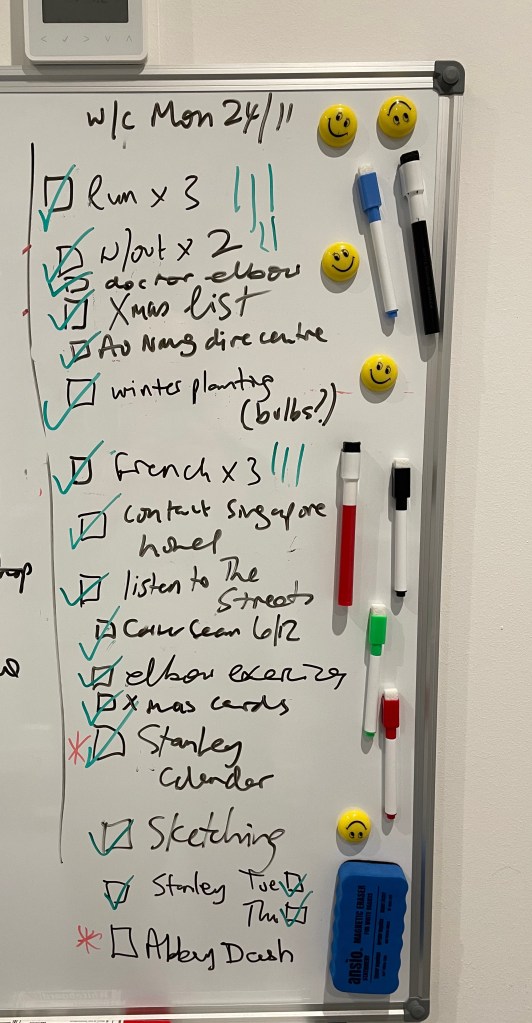 w/c Mon 24/11
Run x 3
W/out x 2
doctor elbow
Xmas list
Au Nang dive centre
winter planting
(bulbs?)
French x 3
contact Singapore
hotel
listen to The
Streets
Call Sean 6/12
elbow exercises
Xmas cards
* Stanley
Calendar
Sketching
Stanley Tue
Thu
* Abbey Dash
ansio.
MAGNETIC ERASER